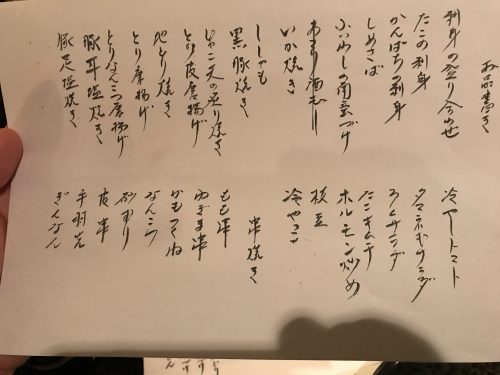 お品書き
刺身の盛り合わせ
たこの刺身
かんぱちの刺身
しめさば
小いわしの南蛮づけ
あさり酒むし
いか焼き
ししゃも
黒豚焼き
じゃこ天の炙り焼き
とり皮唐揚げ
地どり焼き
とり唐揚げ
とりなんこつ唐揚げ
豚耳塩焼き
豚足塩焼き
冷やしトマト
タマネギリング
ハムサラダ
たこキムチ
ホルモン炒め
枝豆
冷やっこ
串焼き
もも串
ねぎま串
かもつくね
なんこつ
砂ずり
皮串
手羽先
ぎんなん